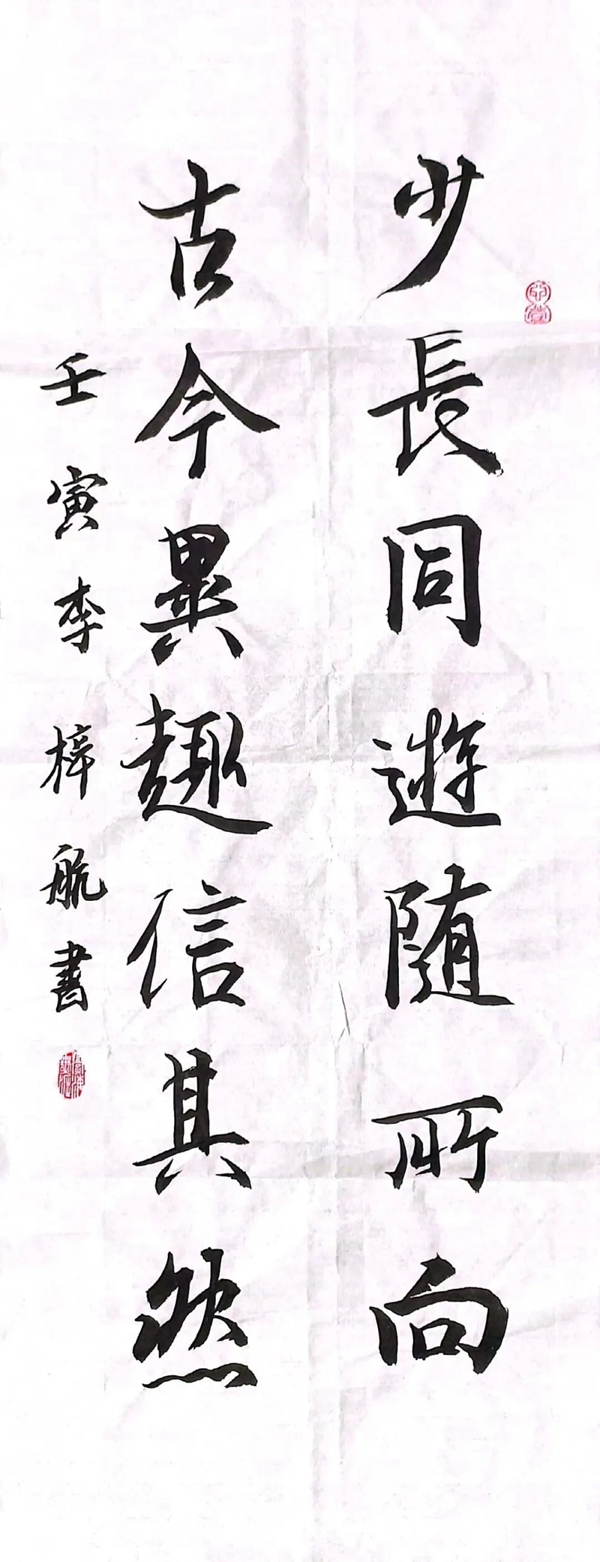 少長同遊随所向
古今異趣信其然
壬寅李梓航書